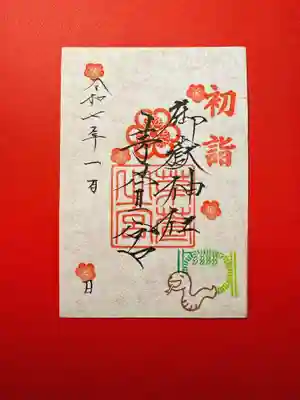 初詣
御嶽神社
茅萱宮
令和七年一月
日